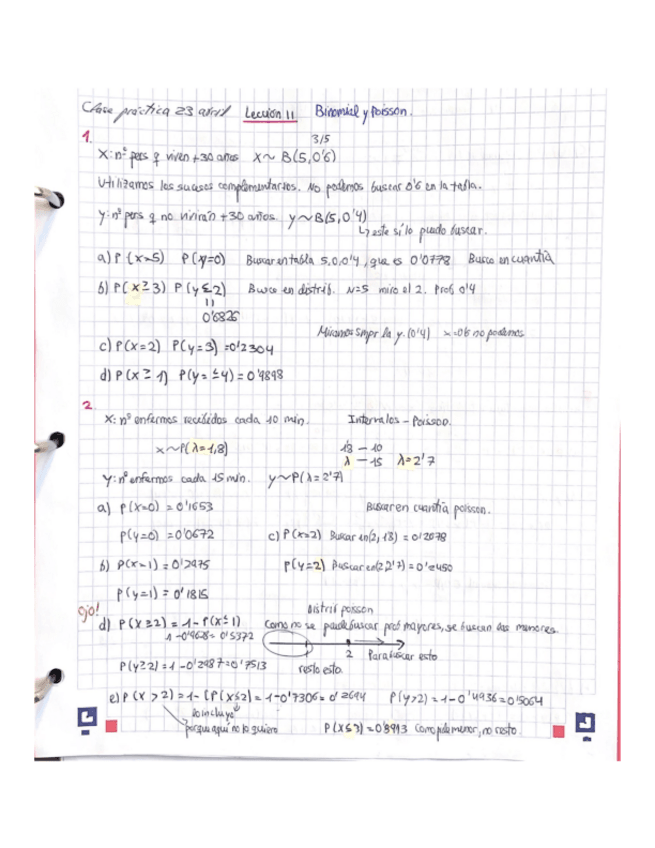 Clase práctica 23 abril Lección 11 Binomial y Poisson.
1. 3/5
X: nº pers q viven +30 años X~B(5,0'6)
Utilizamos los sucesos complementarios. No podemos buscar 0'6 en la tabla.
y: nº pers q no vivirán +30 años. y~B(5,0'4)
↳ este sí lo puedo buscar.
a) P(x=5) P(y=0) Buscar en tabla 5,0,0'4, que es 0'0778 Busco en cuantía
b) P(x≥3) P(y≤2) Busco en distrib. N=5 miro el 2. Prob 0'4
11
0'6826
Miramos smpr la y. (0'4) x=0'6 no podemos
c) P(x=2) P(y=3) =0'2304
d) P(x≥1) P(y=≤4)=0'9898
2.
X: nº enfermos recibidos cada 10 min. Intervalos - Poisson.
x~P(λ=1,8) 1'8 — 10
λ — 15 λ=2'7
Y: nº enfermos cada 15 min. y~P(λ=2'7)
a) P(x=0)=0'1653 Buscar en cuantía poisson.
P(y=0)=0'0672 c) P(x=2) Buscar en(2,1'8)=0'2678
b) P(x=1)=0'2975 P(y=2) Buscar en(2,2'7)=0'2450
P(y=1)=0'1815
Ojo! Distrib poisson
d) P(x≥2)=1-P(x≤1) Como no se puede buscar prob mayores, se buscan las menores.
1-0'4628=0'5372
2 Para buscar esto
P(y≥2)=1-0'2487=0'7513 resto esto.
e) P(x>2)=1-[P(x≤2)=1-0'7306=0'2694 P(y>2)=1-0'4936=0'5064
lo incluyo
porque aquí no lo quiero P(x≤3)=0'8913 Como pide menor, no resto.